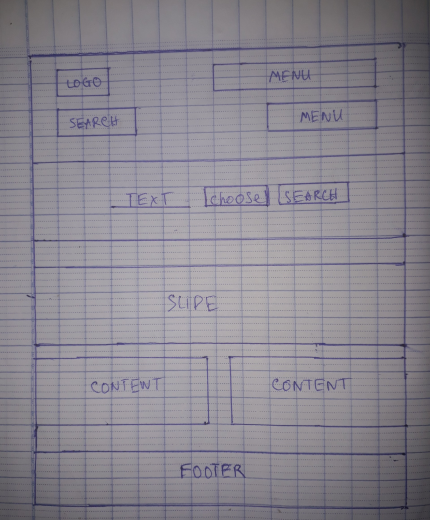 LOGO MENU
SEARCH MENU
TEXT choose SEARCH
SLIDE
CONTENT CONTENT
FOOTER